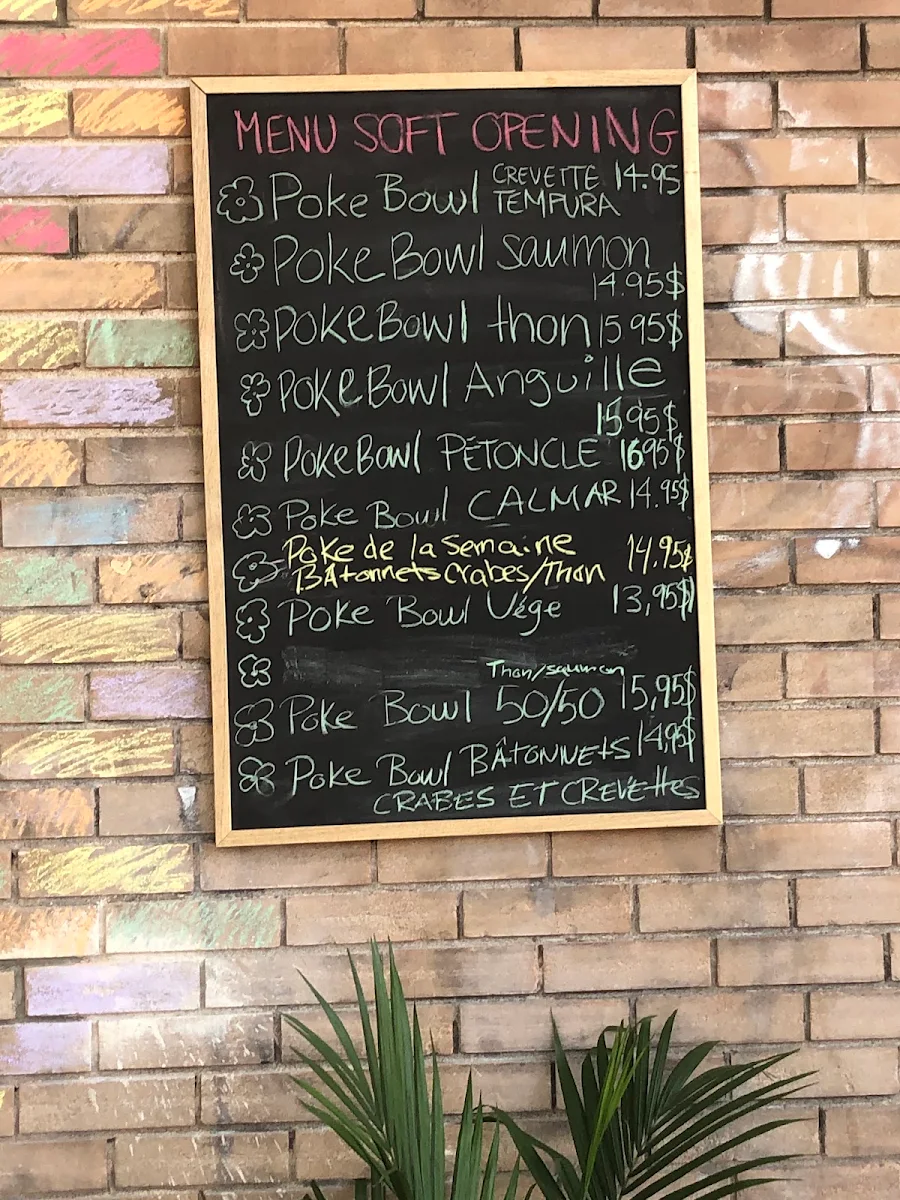 MENU SOFT OPENING
Poke Bowl CREVETTE TEMPURA 14.95
Poke Bowl saumon
14.95$
POKE Bowl thon 15 95$
POKE Bowl Anguille
15 95$
POKE Bowl PÉTONCLE 16.95$
Poke Bowl CALMAR 14.95$
Poke de la semaine 14.95$
BÂtonnets crabes/Thon
Poke Bowl Végé 13,95$
Thon/saumon
Poke Bowl 50/50 15,95$
Poke Bowl BÂTONNETS 14,95$
CRABES ET CREVEttes